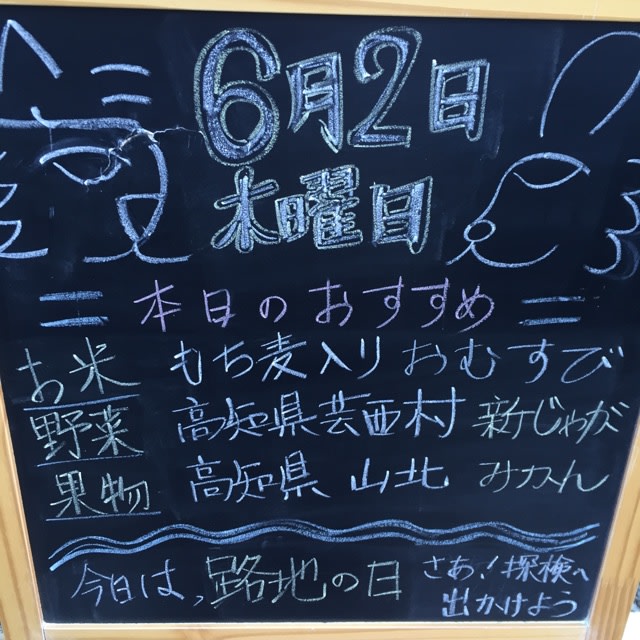 6月2日
木曜日
本日のおすすめ
お米 もち麦入りおむすび
野菜 高知県芸西村 新じゃが
果物 高知県 山北 みかん
今日は、路地の日
さあ!探検へ
出かけよう